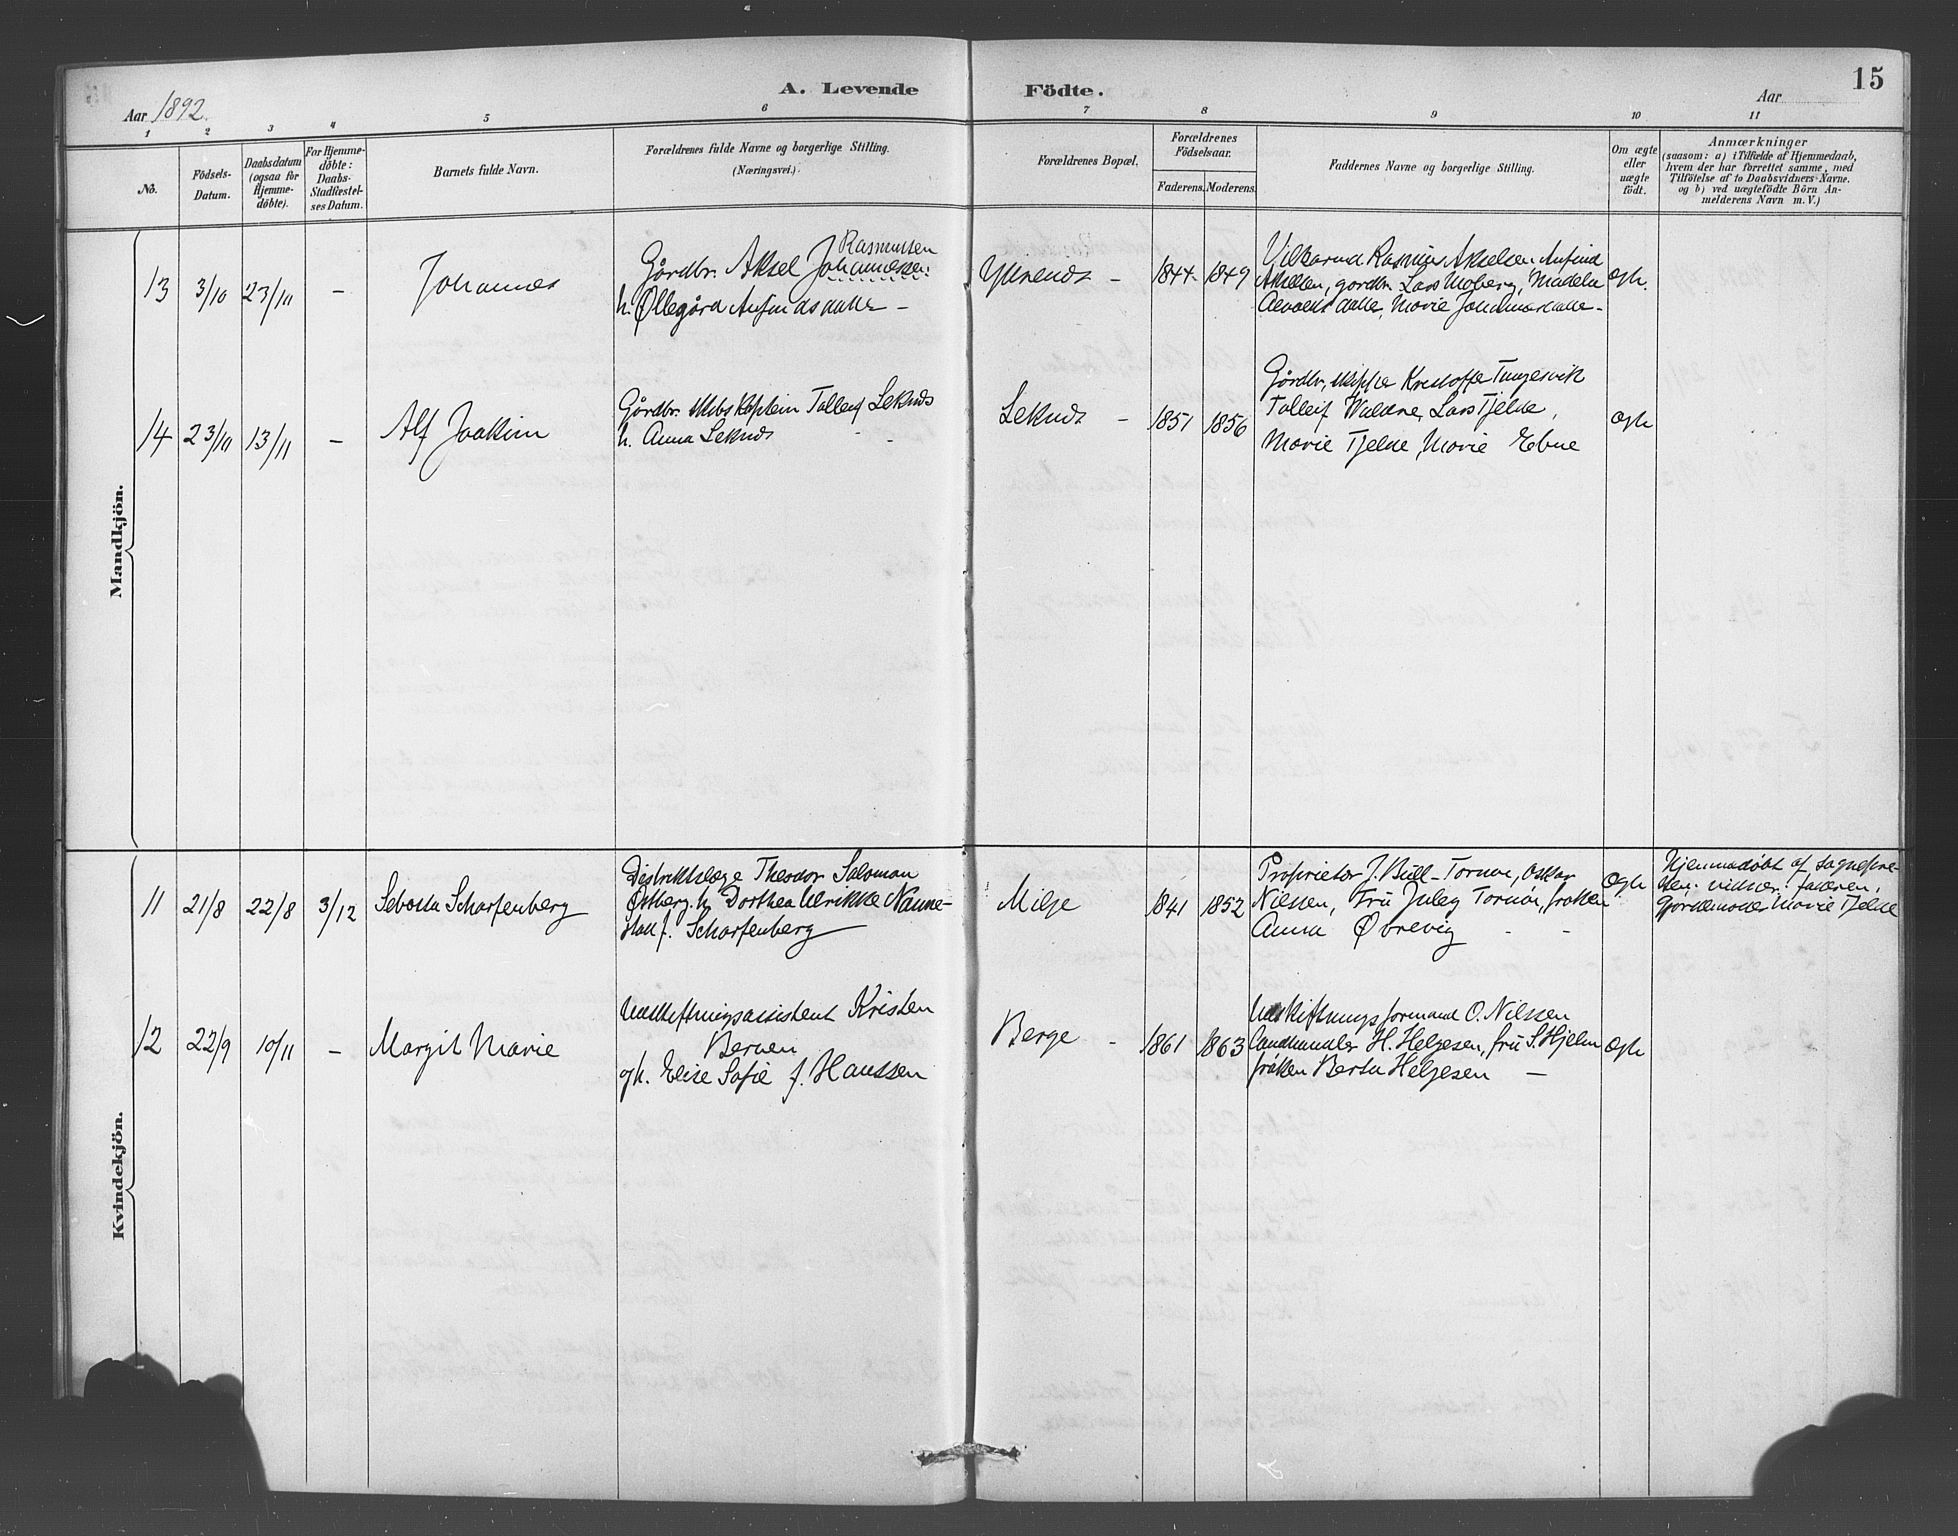 A. Levende Födte.
15
Aar 1892.
Aar
1 2 3 4 5 6 7 8 9 10 11
No.
Födsels-
Datum.
Daabsdatum
(ogsaa for
Hjemme-
döbte).
For Hjemme-
döbte:
Daabs-
Stadfæstel-
ses Datum.
Barnets fulde Navn.
Forældrenes fulde Navne og borgerlige Stilling.
(Næringsvei.)
Forældrenes Bopæl.
Forældrenes
Födselsaar.
Faderens. Moderens.
Faddernes Navne og borgerlige Stilling.
Om ægte
eller
uægte
födt.
Anmærkninger
(saasom: a) i Tilfælde af Hjemmedaab,
hvem der har forrettet samme, med
Tilföielse af to Daabsvidners Navne.
og b) ved uægtefödte Börn An-
melderens Navn m. V.)
Mandkjön.
13 3/10 23/10 – Johannes
Rasmussen
Gårdbr. Aksel Johannessen
h. Øllegård Anfindsdatter –
– 1844 1849
Rasmus Akselsen Anfind
Akselsen, gårdbr. Lars Moberg,
Marie
ægte.
14 23/10 13/11 – Alf Joakim
Gårdbr. Skibskaptein Tolleif Leknes
h. Anna Leknes
Leknes – 1851 1856
Gårdbr, skipper Kristoffer Tungesvik
Tolleif Lars Tjelde,
Marie Tjelde, Marie Ebne
ægte
Kvindekjön.
11 21/8 22/8 3/12 Sebosta Scharfenberg
Distriktslæge Theodor Salomon
Østberg h. Dorthea Ulrikke Nanne-
stad f. Scharfenberg
Milje 1841 1852
Proprietær J. Bull-Tornøe, Oskar
Nilssen, Fru Juley Tornøe, frøken
Anna Øvrevig - -
ægte
Hjemmedøbt af sognepre-
sten; vidner: faderen,
Gjordemoder Marie Tjelde
12 22/9 10/11 – Margit Marie
Udskiftningsassistent Kristen
Bernen
og h. Elise Sofie f. Hanssen
Berge - 1861 1863
Udskiftningsformand O. Nilssen
Landhandler H. Helgesen, fru S. Hjelm
frøken Berta Helgesen –
ægte